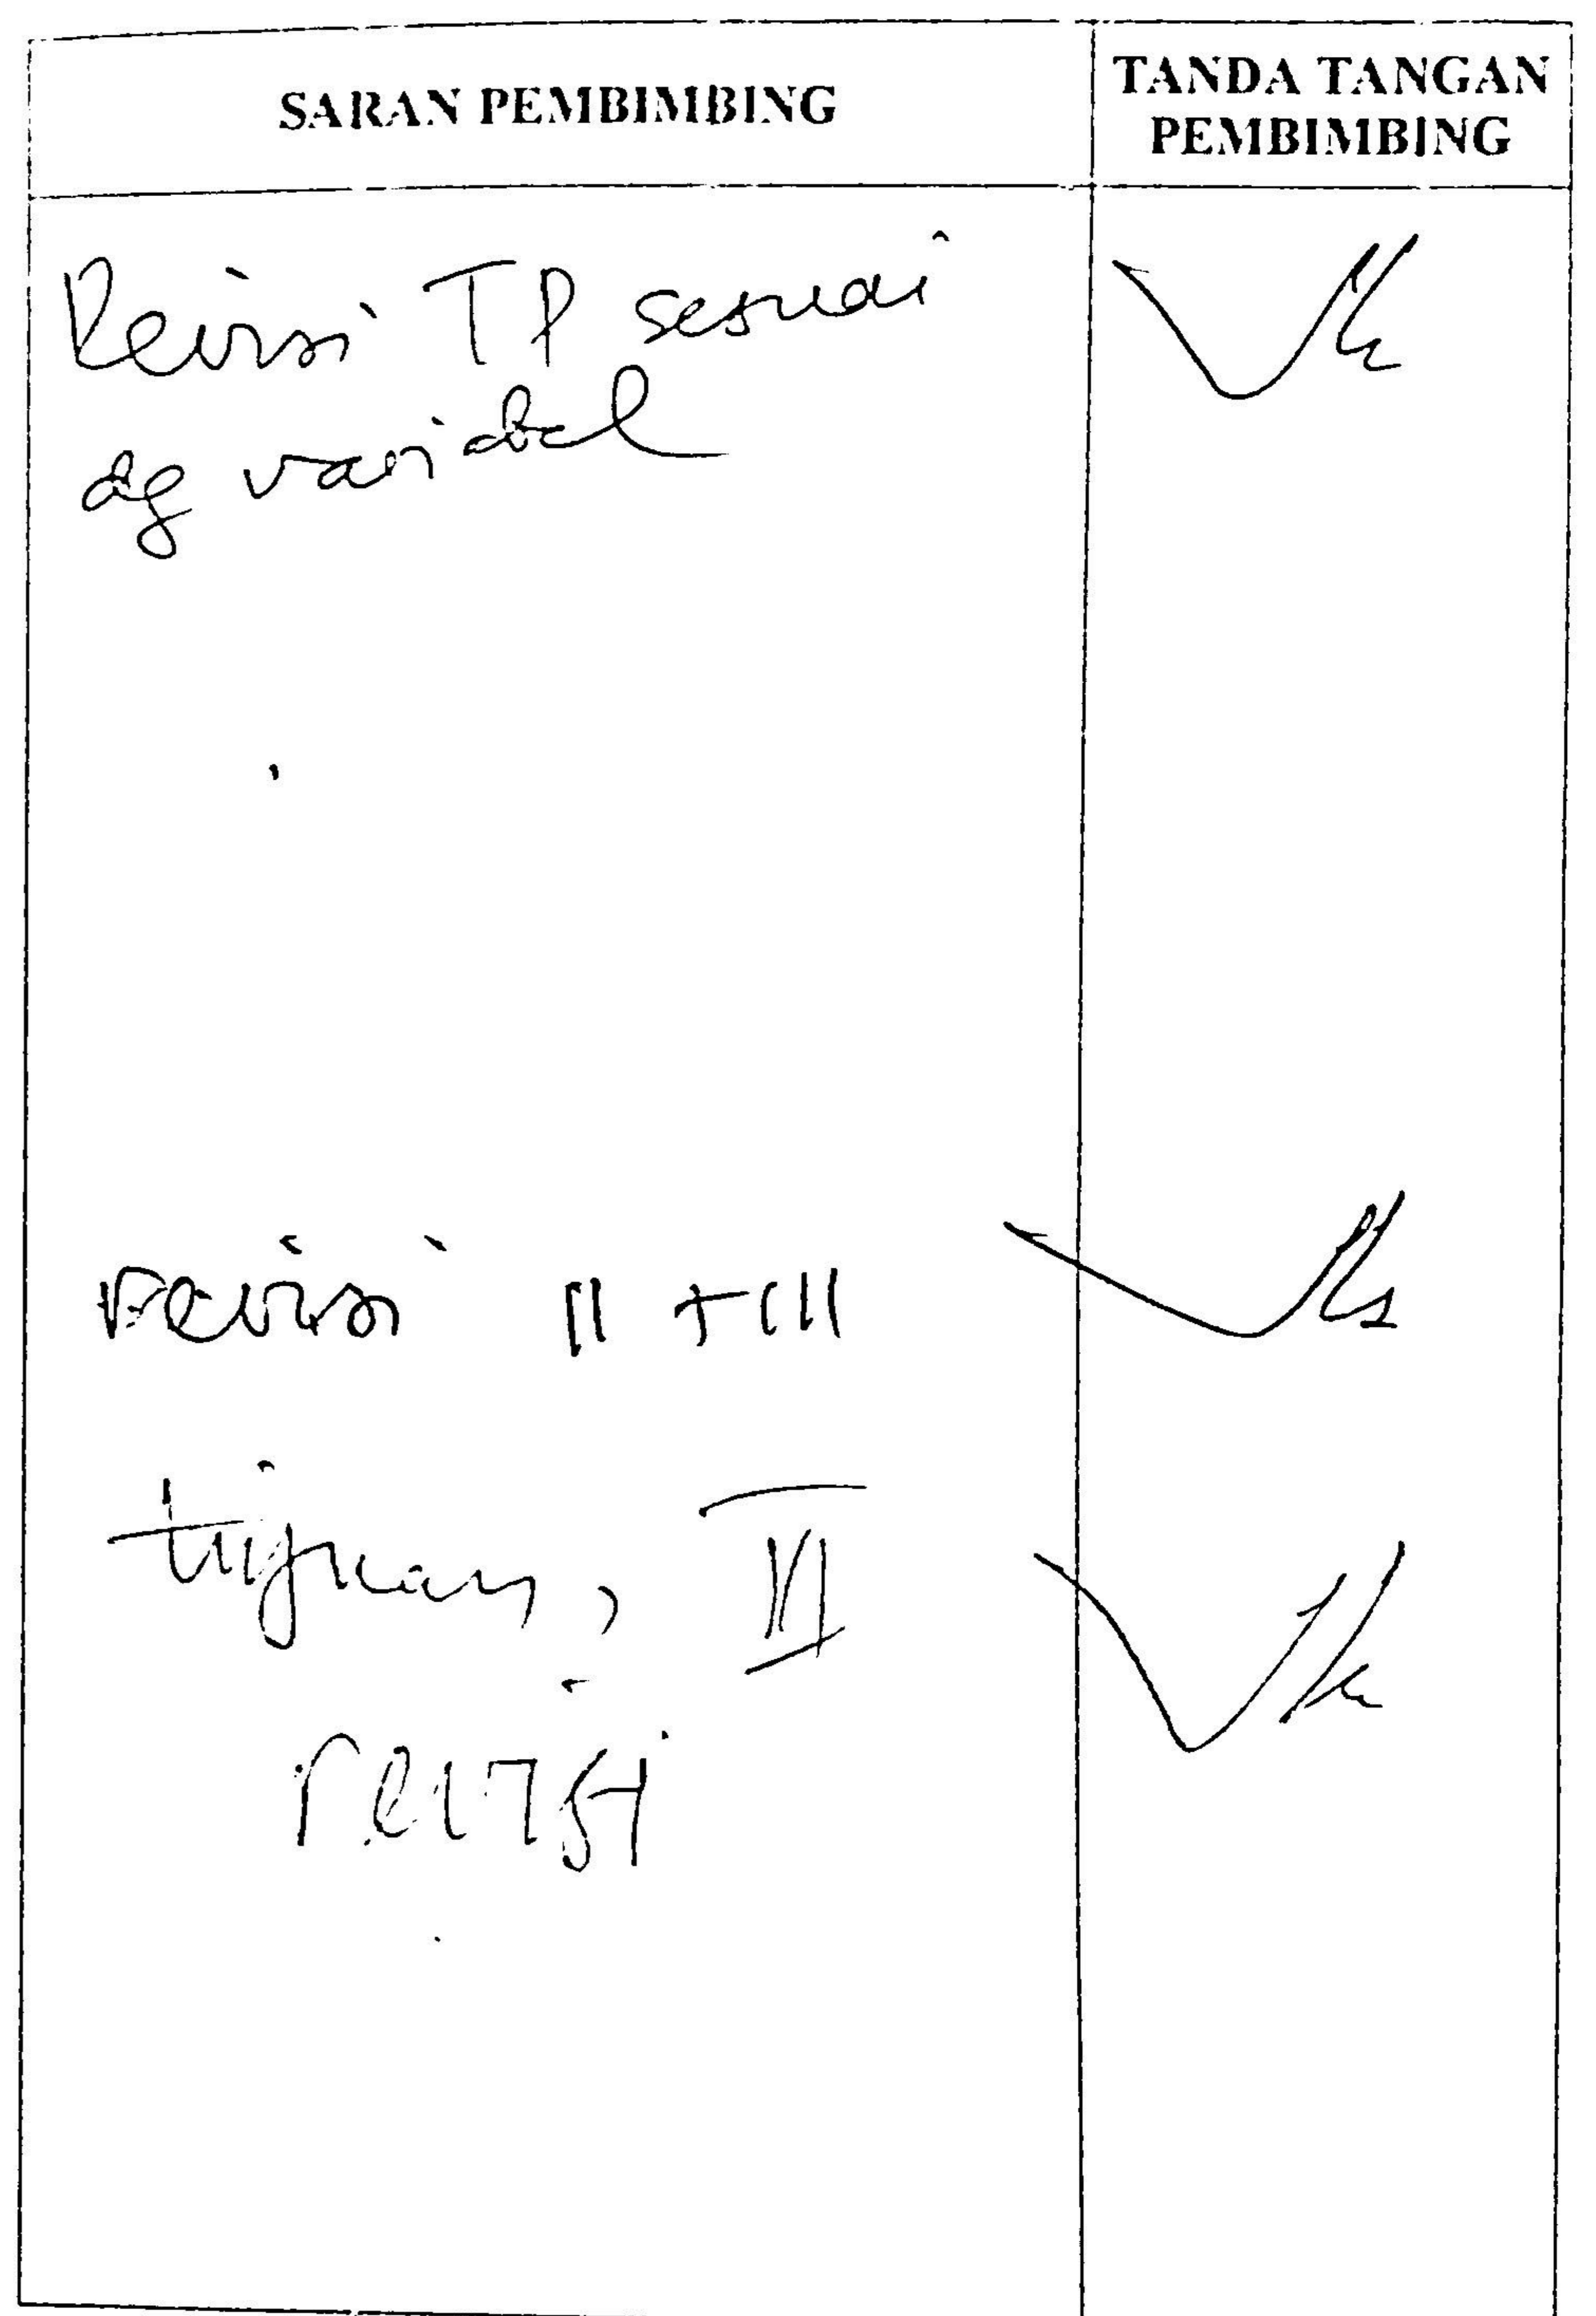 SARAN PEMBIMBING
TANDA TANGAN
PEMBIMBING
Revisi TP sesuai
dg variabel
revisi II + III
tujuan, VI
revisi